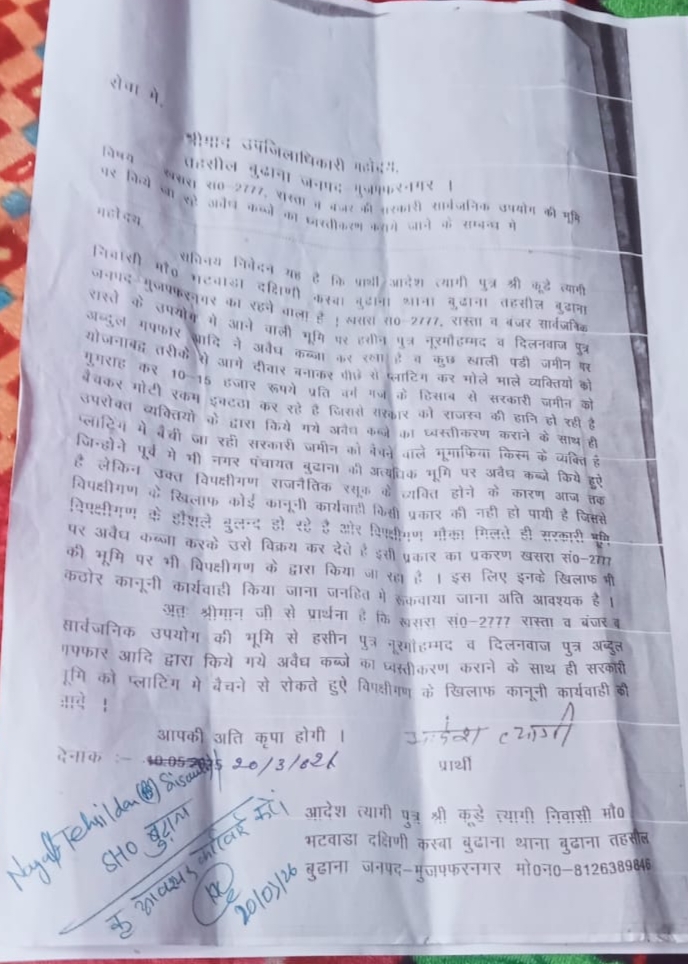 सेवा मे,
श्रीमान उपजिलाधिकारी महोदय,
तहसील बुढाना जनपद मुजफ्फरनगर ।
विषय खसरा सं0-2777, रास्ता व बंजर की सरकारी सार्वजनिक उपयोग की भूमि
पर किये जा रहे अवैध कब्जे का ध्वस्तीकरण कराये जाने के सम्बन्ध मे
महोदय,
सविनय निवेदन यह है कि प्रार्थी आदेश त्यागी पुत्र श्री कूडे त्यागी
निवासी मौ0 भटवाडा दक्षिणी कस्बा बुढाना थाना बुढाना तहसील बुढाना
जनपद मुजफ्फरनगर का रहने वाला है । खसरा सं0-2777, रास्ता व बंजर सार्वजनिक
रास्ते के उपयोग मे आने वाली भूमि पर हसीन पुत्र नूरमौहम्मद व दिलनवाज पुत्र
अब्दुल गफ्फार आदि ने अवैध कब्जा कर रखा है व कुछ खाली पडी जमीन पर
योजनाबद्ध तरीके से आगे दीवार बनाकर पीछे से प्लाटिंग कर भोले भाले व्यक्तियों को
गुमराह कर 10-15 हजार रूपये प्रति वर्ग गज के हिसाब से सरकारी जमीन को
बैचकर मोटी रकम इक्टठा कर रहे है जिससे सरकार को राजस्व की हानि हो रही है
उपरोक्त व्यक्तियो के द्वारा किये गये अवैध कब्जे का ध्वस्तीकरण कराने के साथ ही
प्लाटिंग मे बैची जा रही सरकारी जमीन को बैचने वाले भूमाफिया किस्म के व्यक्ति है
जिन्होने पूर्व मे भी नगर पंचायत बुढाना की अत्यधिक भूमि पर अवैध कब्जे किये हुऐ
है लेकिन उक्त विपक्षीगण राजनैतिक रसूक के व्यक्ति होने के कारण आज तक
विपक्षीगण के खिलाफ कोई कानूनी कार्यवाही किसी प्रकार की नही हो पायी है जिससे
विपक्षीगण के हौशले बुलन्द हो रहे है और विपक्षीगण मौका मिलते ही सरकारी भूमि
पर अवैध कब्जा करके उसे विक्रय कर देते है इसी प्रकार का प्रकरण खसरा सं0-2777
की भूमि पर भी विपक्षीगण के द्वारा किया जा रहा है । इस लिए इनके खिलाफ भी
कठोर कानूनी कार्यवाही किया जाना जनहित मे रूकवाया जाना अति आवश्यक है ।
अतः श्रीमान जी से प्रार्थना है कि खसरा सं0-2777 रास्ता व बंजर व
सार्वजनिक उपयोग की भूमि से हसीन पुत्र नूरमौहम्मद व दिलनवाज पुत्र अब्दुल
गफ्फार आदि द्वारा किये गये अवैध कब्जे का ध्वस्तीकरण कराने के साथ ही सरकारी
भूमि को प्लाटिंग मे बैचने से रोकते हुऐ विपक्षीगण के खिलाफ कानूनी कार्यवाही की
जावे ।
आपकी अति कृपा होगी ।
आदेश त्यागी
देनाक :- 10.05.2025 20/3/026
प्रार्थी
आदेश त्यागी पुत्र श्री कूडे त्यागी निवासी मौ0
भटवाडा दक्षिणी कस्बा बुढाना थाना बुढाना तहसील
बुढाना जनपद-मुजफ्फरनगर मो0न0-8126389846
Nayab Tehsildar
SHO बुढाना
कृ आवश्यक कार्रवाई करें।
20/03/26